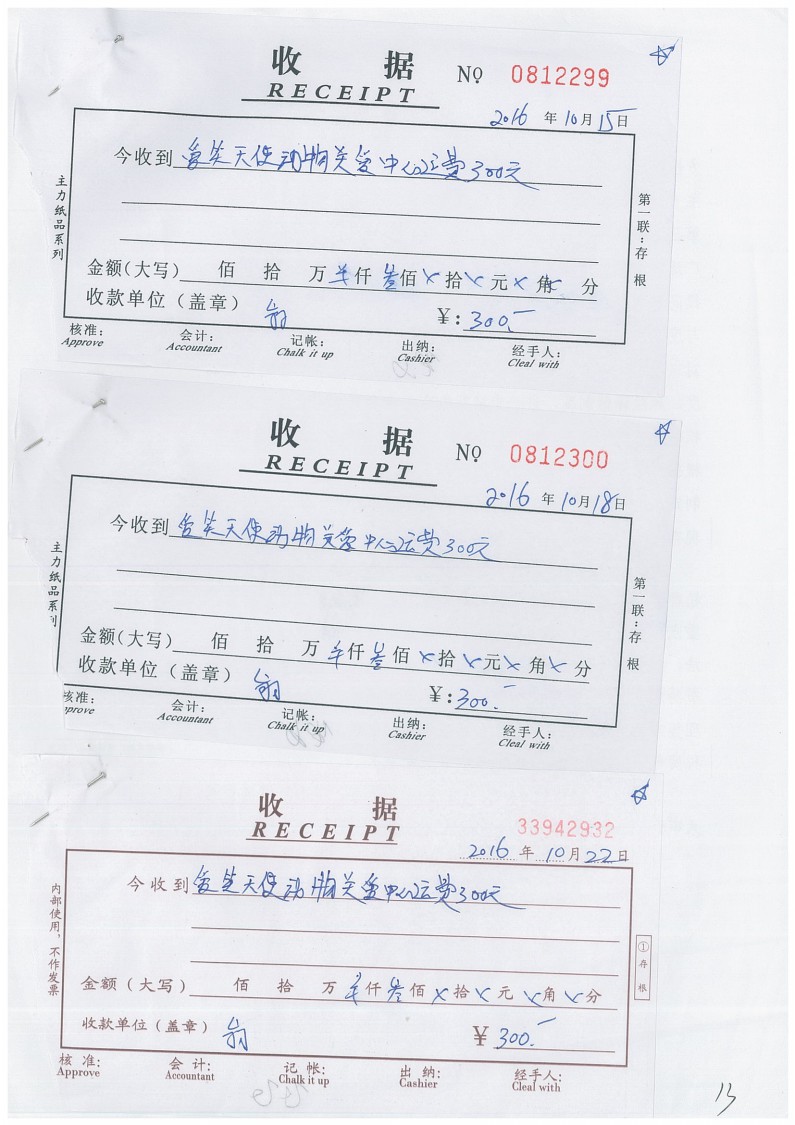 收 据 № 0812299
RECEIPT
2016 年 10 月 15 日
今收到 爱笑天使动物关爱中心运费300元
主力纸品系列
第一联：存根
金额（大写） 佰 拾 万 仟 叁佰 × 拾 × 元 × 角 × 分
收款单位（盖章） ¥: 300.-
核准： 会计： 记帐： 出纳： 经手人：
Approve Accountant Chalk it up Cashier Cleal with
收 据 № 0812300
RECEIPT
2016 年 10 月 18 日
今收到 爱笑天使动物关爱中心运费300元
主力纸品系列
第一联：存根
金额（大写） 佰 拾 万 仟 叁佰 × 拾 × 元 × 角 × 分
收款单位（盖章） ¥: 300.-
核准： 会计： 记帐： 出纳： 经手人：
prove Accountant Chalk it up Cashier Cleal with
收 据
RECEIPT 33942932
2016 年 10 月 22 日
今收到 爱笑天使动物关爱中心运费300元
内部使用，不作发票
①存根
金额（大写） 佰 拾 万 仟 叁佰 × 拾 × 元 × 角 × 分
收款单位（盖章） ¥ 300.-
核 准: 会 计: 记 帐: 出 纳: 经手人:
Approve Accountant Chalk it up Cashier Cleal with
13